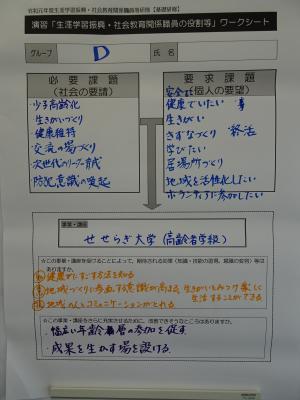 令和元年度生涯学習振興・社会教育関係職員等研修【基礎研修】
演習「生涯学習振興・社会教育関係職員の役割等」ワークシート
グループ D 氏名
必要課題
（社会の要請）
・少子高齢化
・生きがいづくり
・健康維持
・交流の場づくり
・次世代のリーダー育成
・防犯意識の喚起
要求課題
（個人の要望）
安全
健康でいたい
生きがい
きずなづくり 終活
学びたい
居場所づくり
地域を活性化したい
ボランティアに参加したい
事業・講座
せせらぎ大学（高齢者学級）
☆この事業・講座を受けることによって、期待される効果（知識・技能の習得、意識の変容）等は
ありますか。
健康で
方法を知る
地域づくりに参画する意識が高まる。生きがいをみつけ楽しく
生活することができる
地域の人とコミュニケーションがとれる
☆この事業・講座をさらに充実させるために、改善できそうなところはありますか。
・幅広い年齢層の参加を促す
・成果を生かす場を設ける